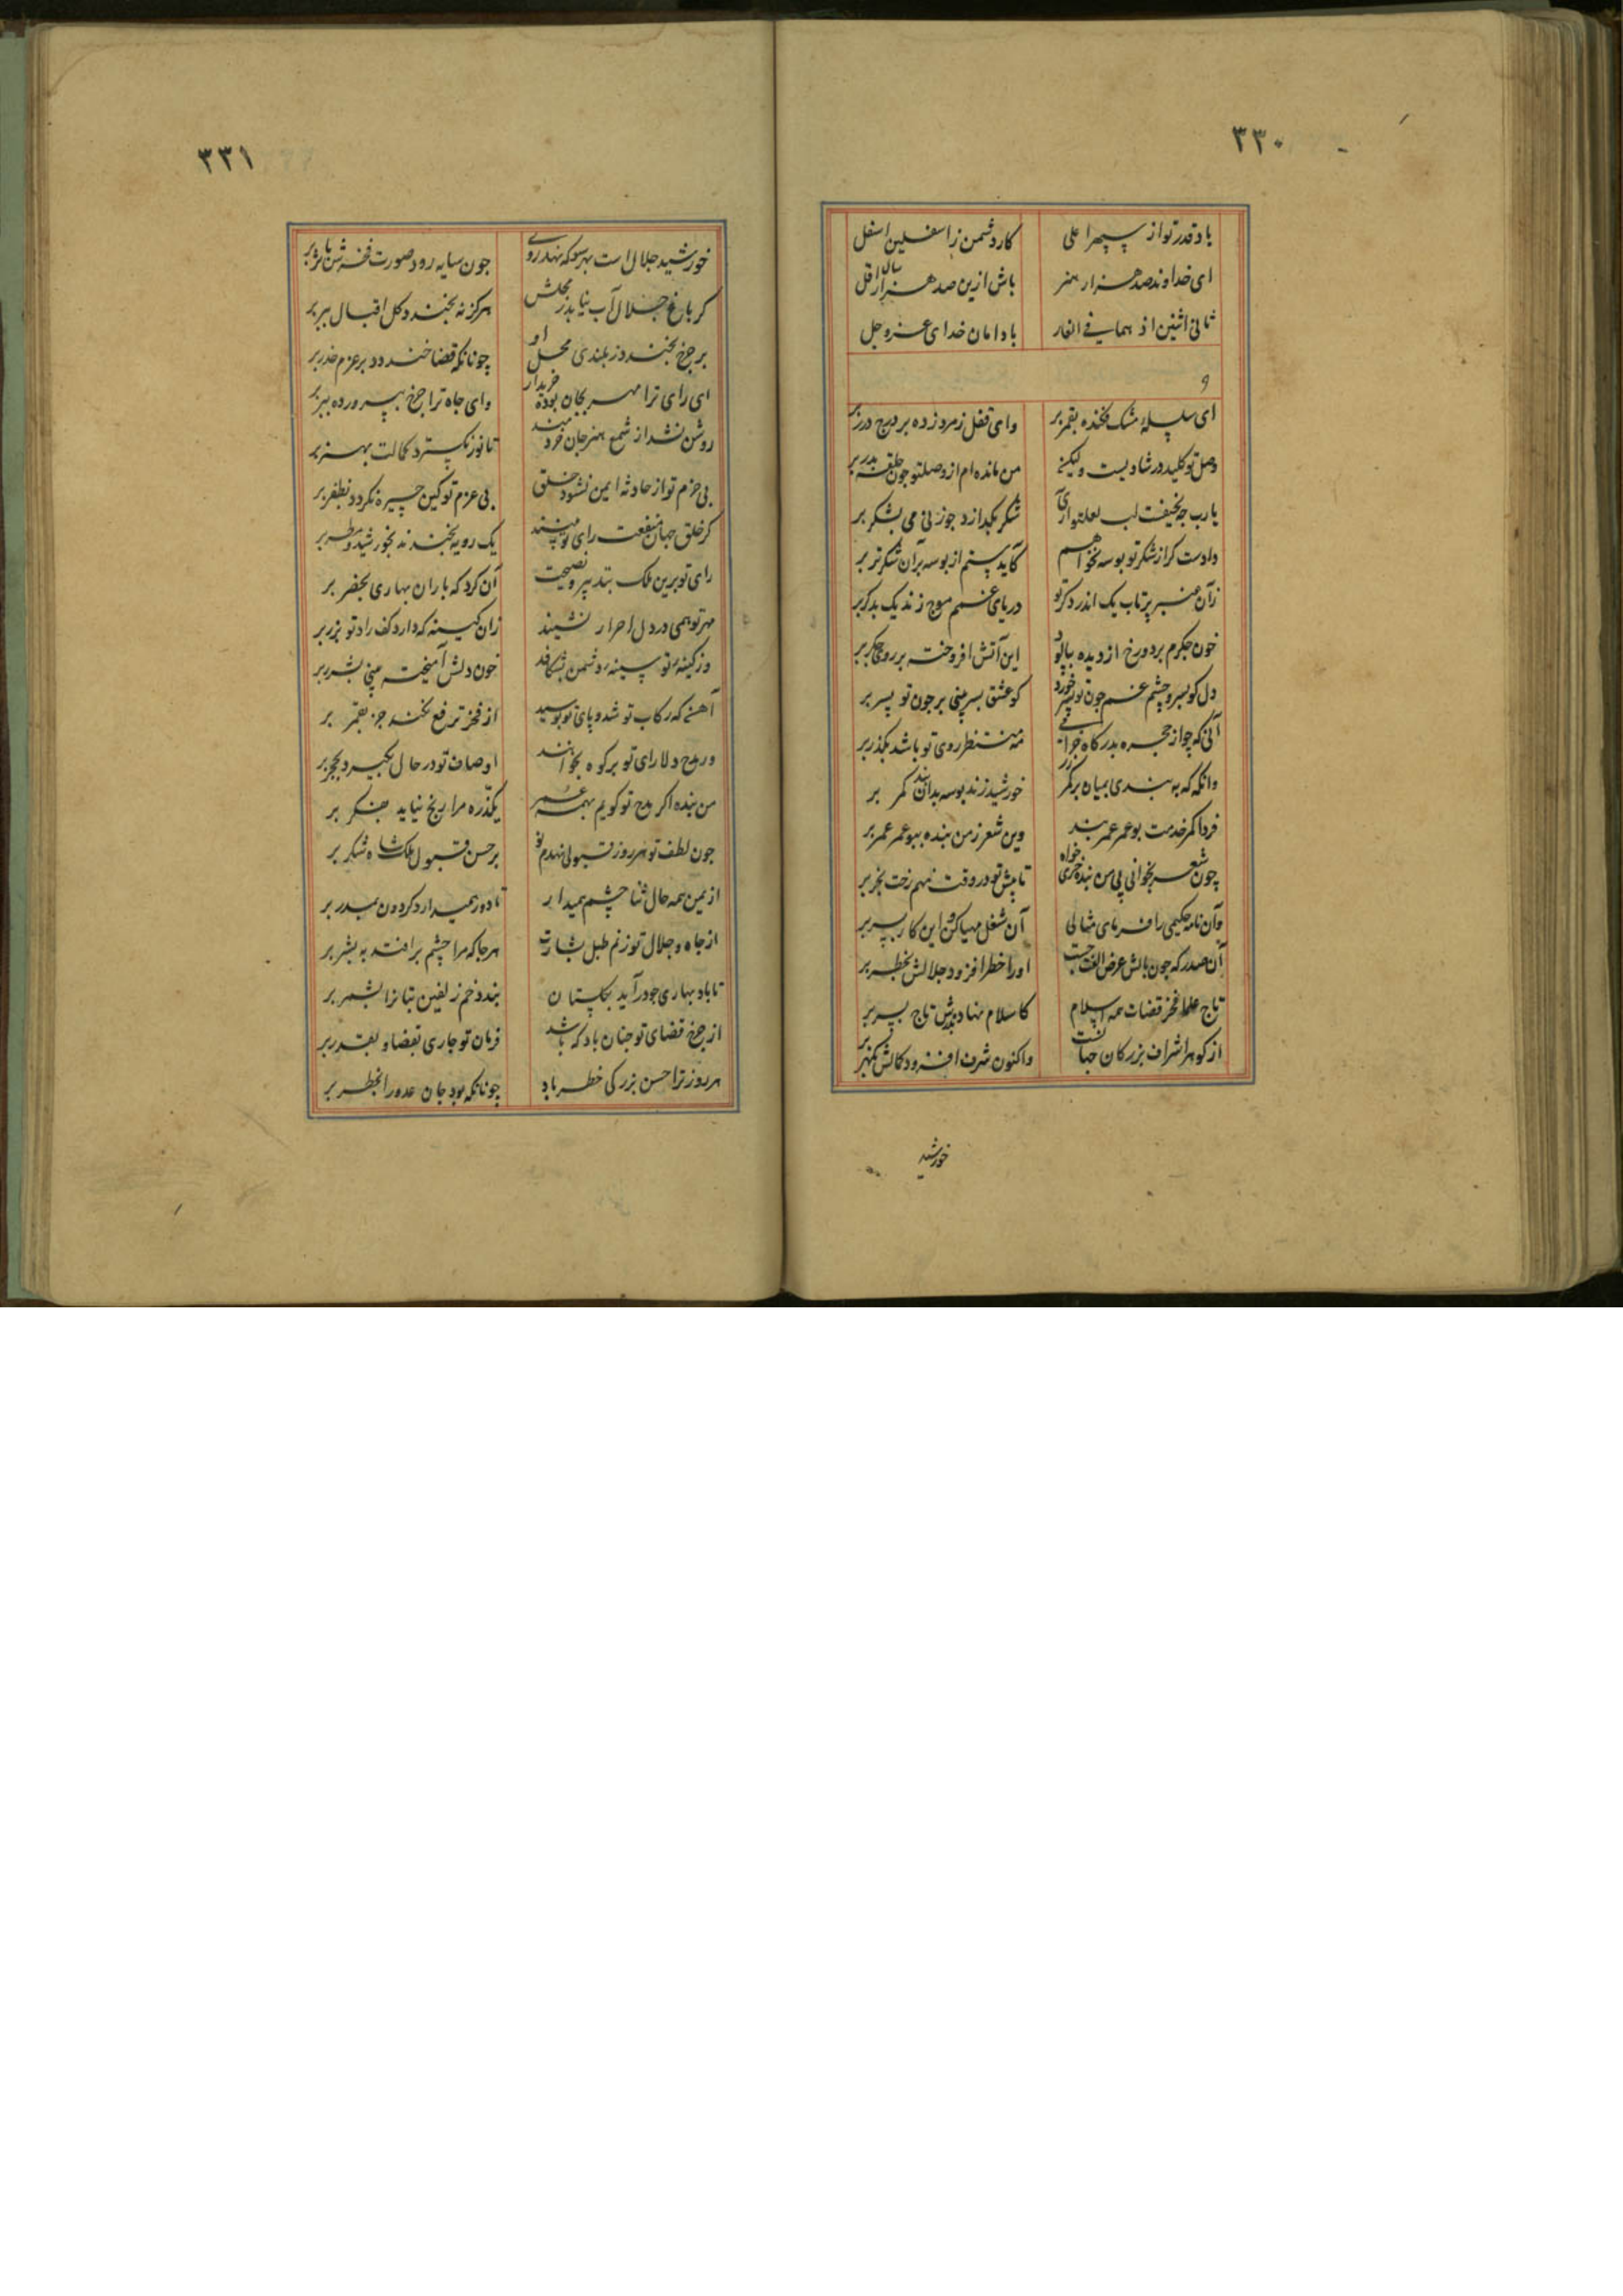 ۳۳۰
باد قدر تو از سپهر اعلی کار دشمن ز اسفلین اسفل
ای خداوند صد هزار هنر باش ازین صد هزار سال اقل
ثانی اثنین اذ هما فی الغار بادا مان خدای عزوجل
ای سلسلهٔ مشک فکنده بقمر بر وای قفل زمرد زده بر درج درر بر
وصل تو کلید در شادیست ولیکن من مانده ام از وصل تو چون حلقه بدر بر
یارب چه لب لعل تو شکر بگدازد جو می بشکر بر
دادست کر از شکر تو بوسه نخواهم کاید ستم از بوسه بر آن شکر تر بر
زآن عنبر پرتاب یک اندر دکر تو دریای غم موج زند یک بدکر بر
خون جکرم بر دو رخ از دیده بپالود این آتش افروخته بر روی جکر بر
دل کو بسر و چشم غم جون تو پسر خورد کو عشق بسر بینی بر جون تو پسر بر
آنی که چو از حجره بدرکاه خرامی مه منتظر روی تو باشد بکذر بر
وانکه که به بندی بمیان بر کمر زر خورشید زند بوسه بدان بند کمر بر
فردا کمر خدمت بوعمر عمر بند وین شعر ز من بنده ببوعمر عمر بر
چون شعر بخوانی پی من بنده جری خواه تا پیش تو در وقت نهم رخت بخر بر
وآن نامه حکیمی را فرمای مثالی آن شغل مهیا کن و این کار بسر بر
آن صدر که جون بالش عرض الف جست او را خطر افزود جلالش بخطر بر
تاج علما فخر قضات همه اسلام کاسلام نهاد بدرش تاج بسر بر
از کوهر اشراف بزرکان جهانست واکنون شرف افزود کمالش بکهر بر
خورشید
۳۳۱
خورشید جلال است بهر سو که نهد روی جون سایه رود صورت فخرش باثر بر
کر باغ جلال آب نیابد ز محلش هرکز نه بخندد کل اقبال ببر بر
بر چرخ بخندد ز بلندی محل او چونانکه قضا خندد بر عزم حذر بر
ای رای ترا مهر بجان بوده خریدار وای جاه ترا چرخ بپرورده ببر بر
روشن نشد از شمع هنر جان خردمند تا نور نکسترد کمالت بهنر بر
بی حزم تو از حادثه ایمن نشود خلق بی عزم تو کین چیره نکردد بظفر بر
کر خلق جهان منفعت رای تو بینند یک رویه بخندند بخورشید و مطر بر
رای تو برین ملک بتدبیر و نصیحت آن کرد که باران بهاری بخضر بر
مهر تو همی در دل احرار نشیند زان کینه که دارد کف راد تو بزر بر
وز کینهٔ تو سینهٔ دشمن بشکافد خون دلش آمیخته بینی بشرر بر
آهن که رکاب تو شد و پای تو بوسید از فخر ترفع نکند جز بقمر بر
ور مدح دلارای تو بر کوه بخوانند اوصاف تو در حال بکیرد بحجر بر
من بنده اکر مدح تو کویم بهمه عمر یکذره مرا رنج نیاید بفکر بر
جون لطف تو هر روز قبولی نهدم نو بر حسن قبول ملک شاه شکر بر
از یمن همه حال ثنا چشم همیدار تا دور همیدارد کردون بمدر بر
از جاه و جلال تو زنم طبل بشارت هرجا که مرا چشم برافتد به بشر بر
تا باد بهاری جو درآید بکلستان بندد خم زلفین بتانرا بشمر بر
از چرخ قضای تو جنان باد که باشد فرمان تو جاری بقضا و بقدر بر
هر روز ترا حسن بزرکی خطر باد چونانکه بود جان عدو را بخطر بر